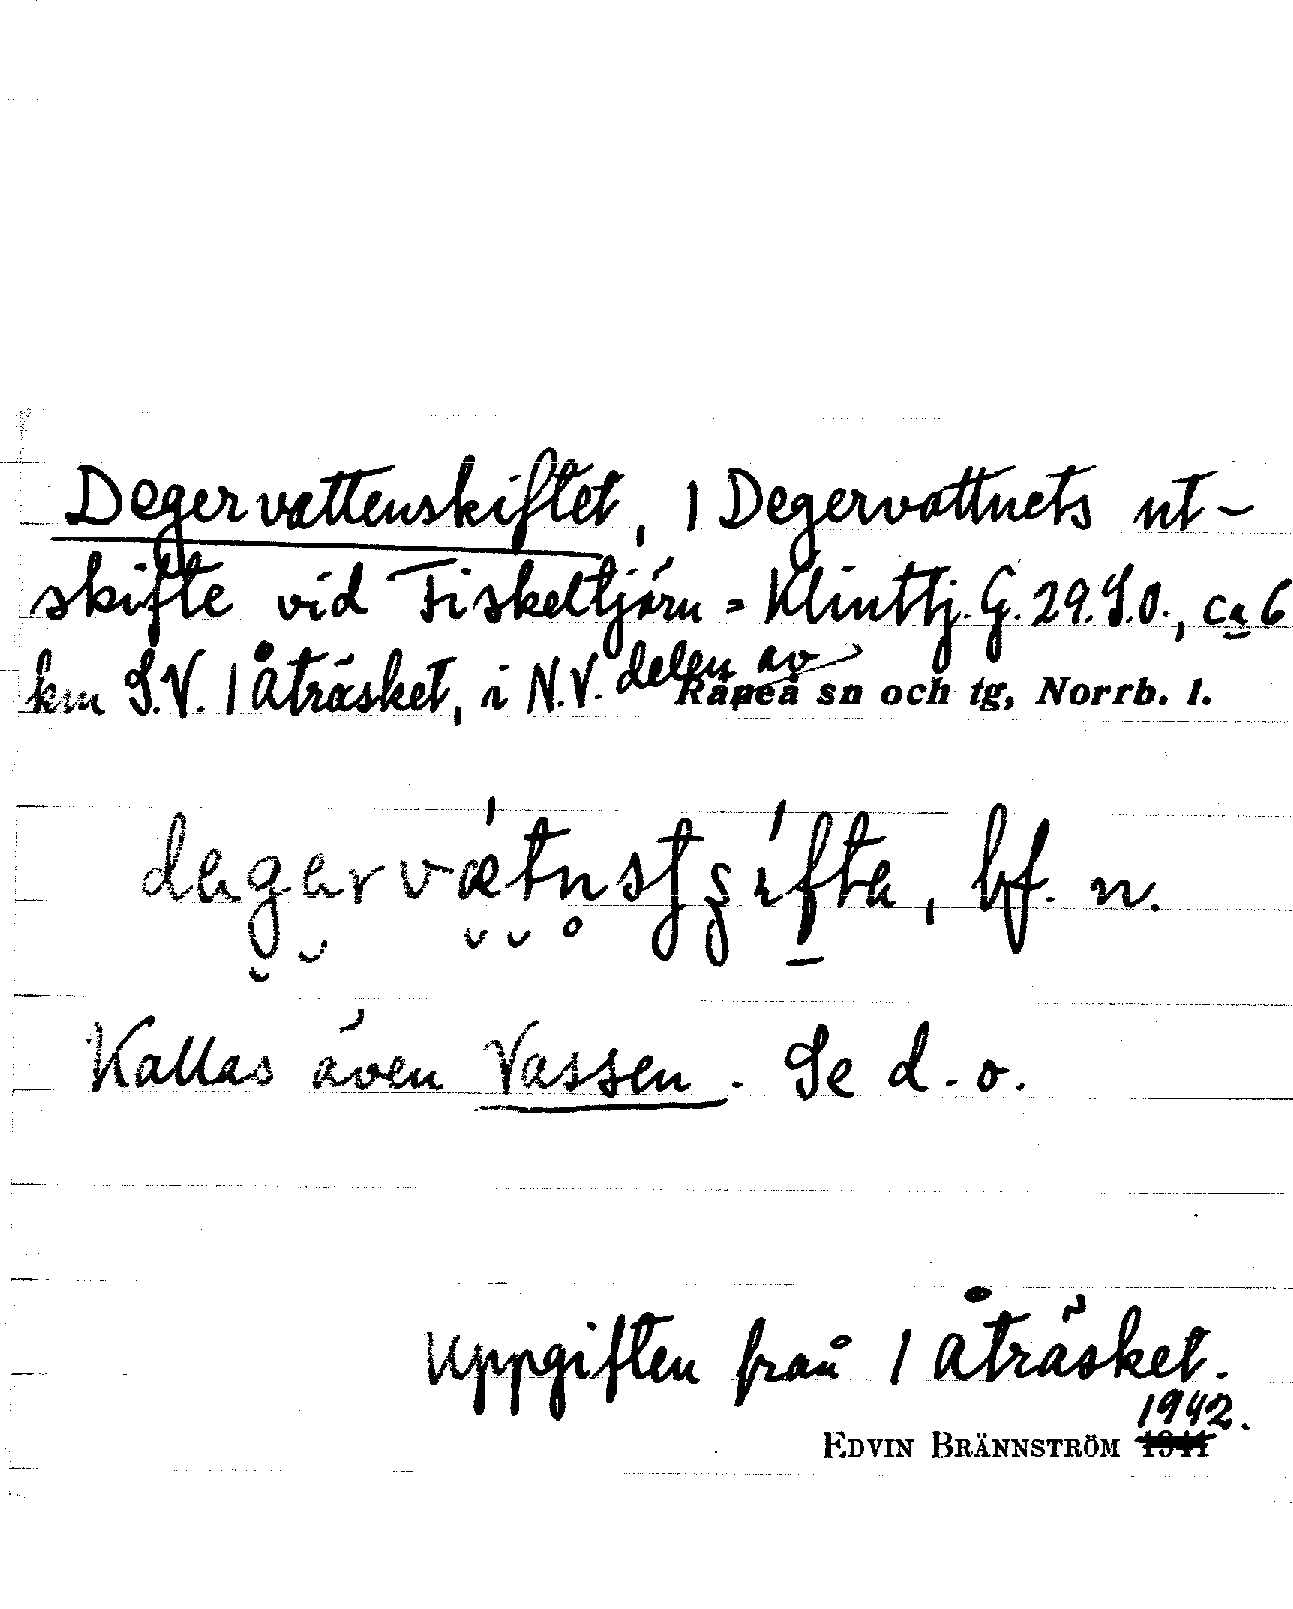 Degervattenskiftet, 1 Degervattnets ut-
skifte vid Fiskeltjärn = Klinttj. G. 29. S.O., ca 6
km S.V. 1 Åträsket, i N.V. delen av Råneå sn och tg, Norrb. l.
bf. n.
Kallas även Vassen. Se d. o.
Uppgiften från 1 Åträsket.
1942.
EDVIN BRÄNNSTRÖM 1941